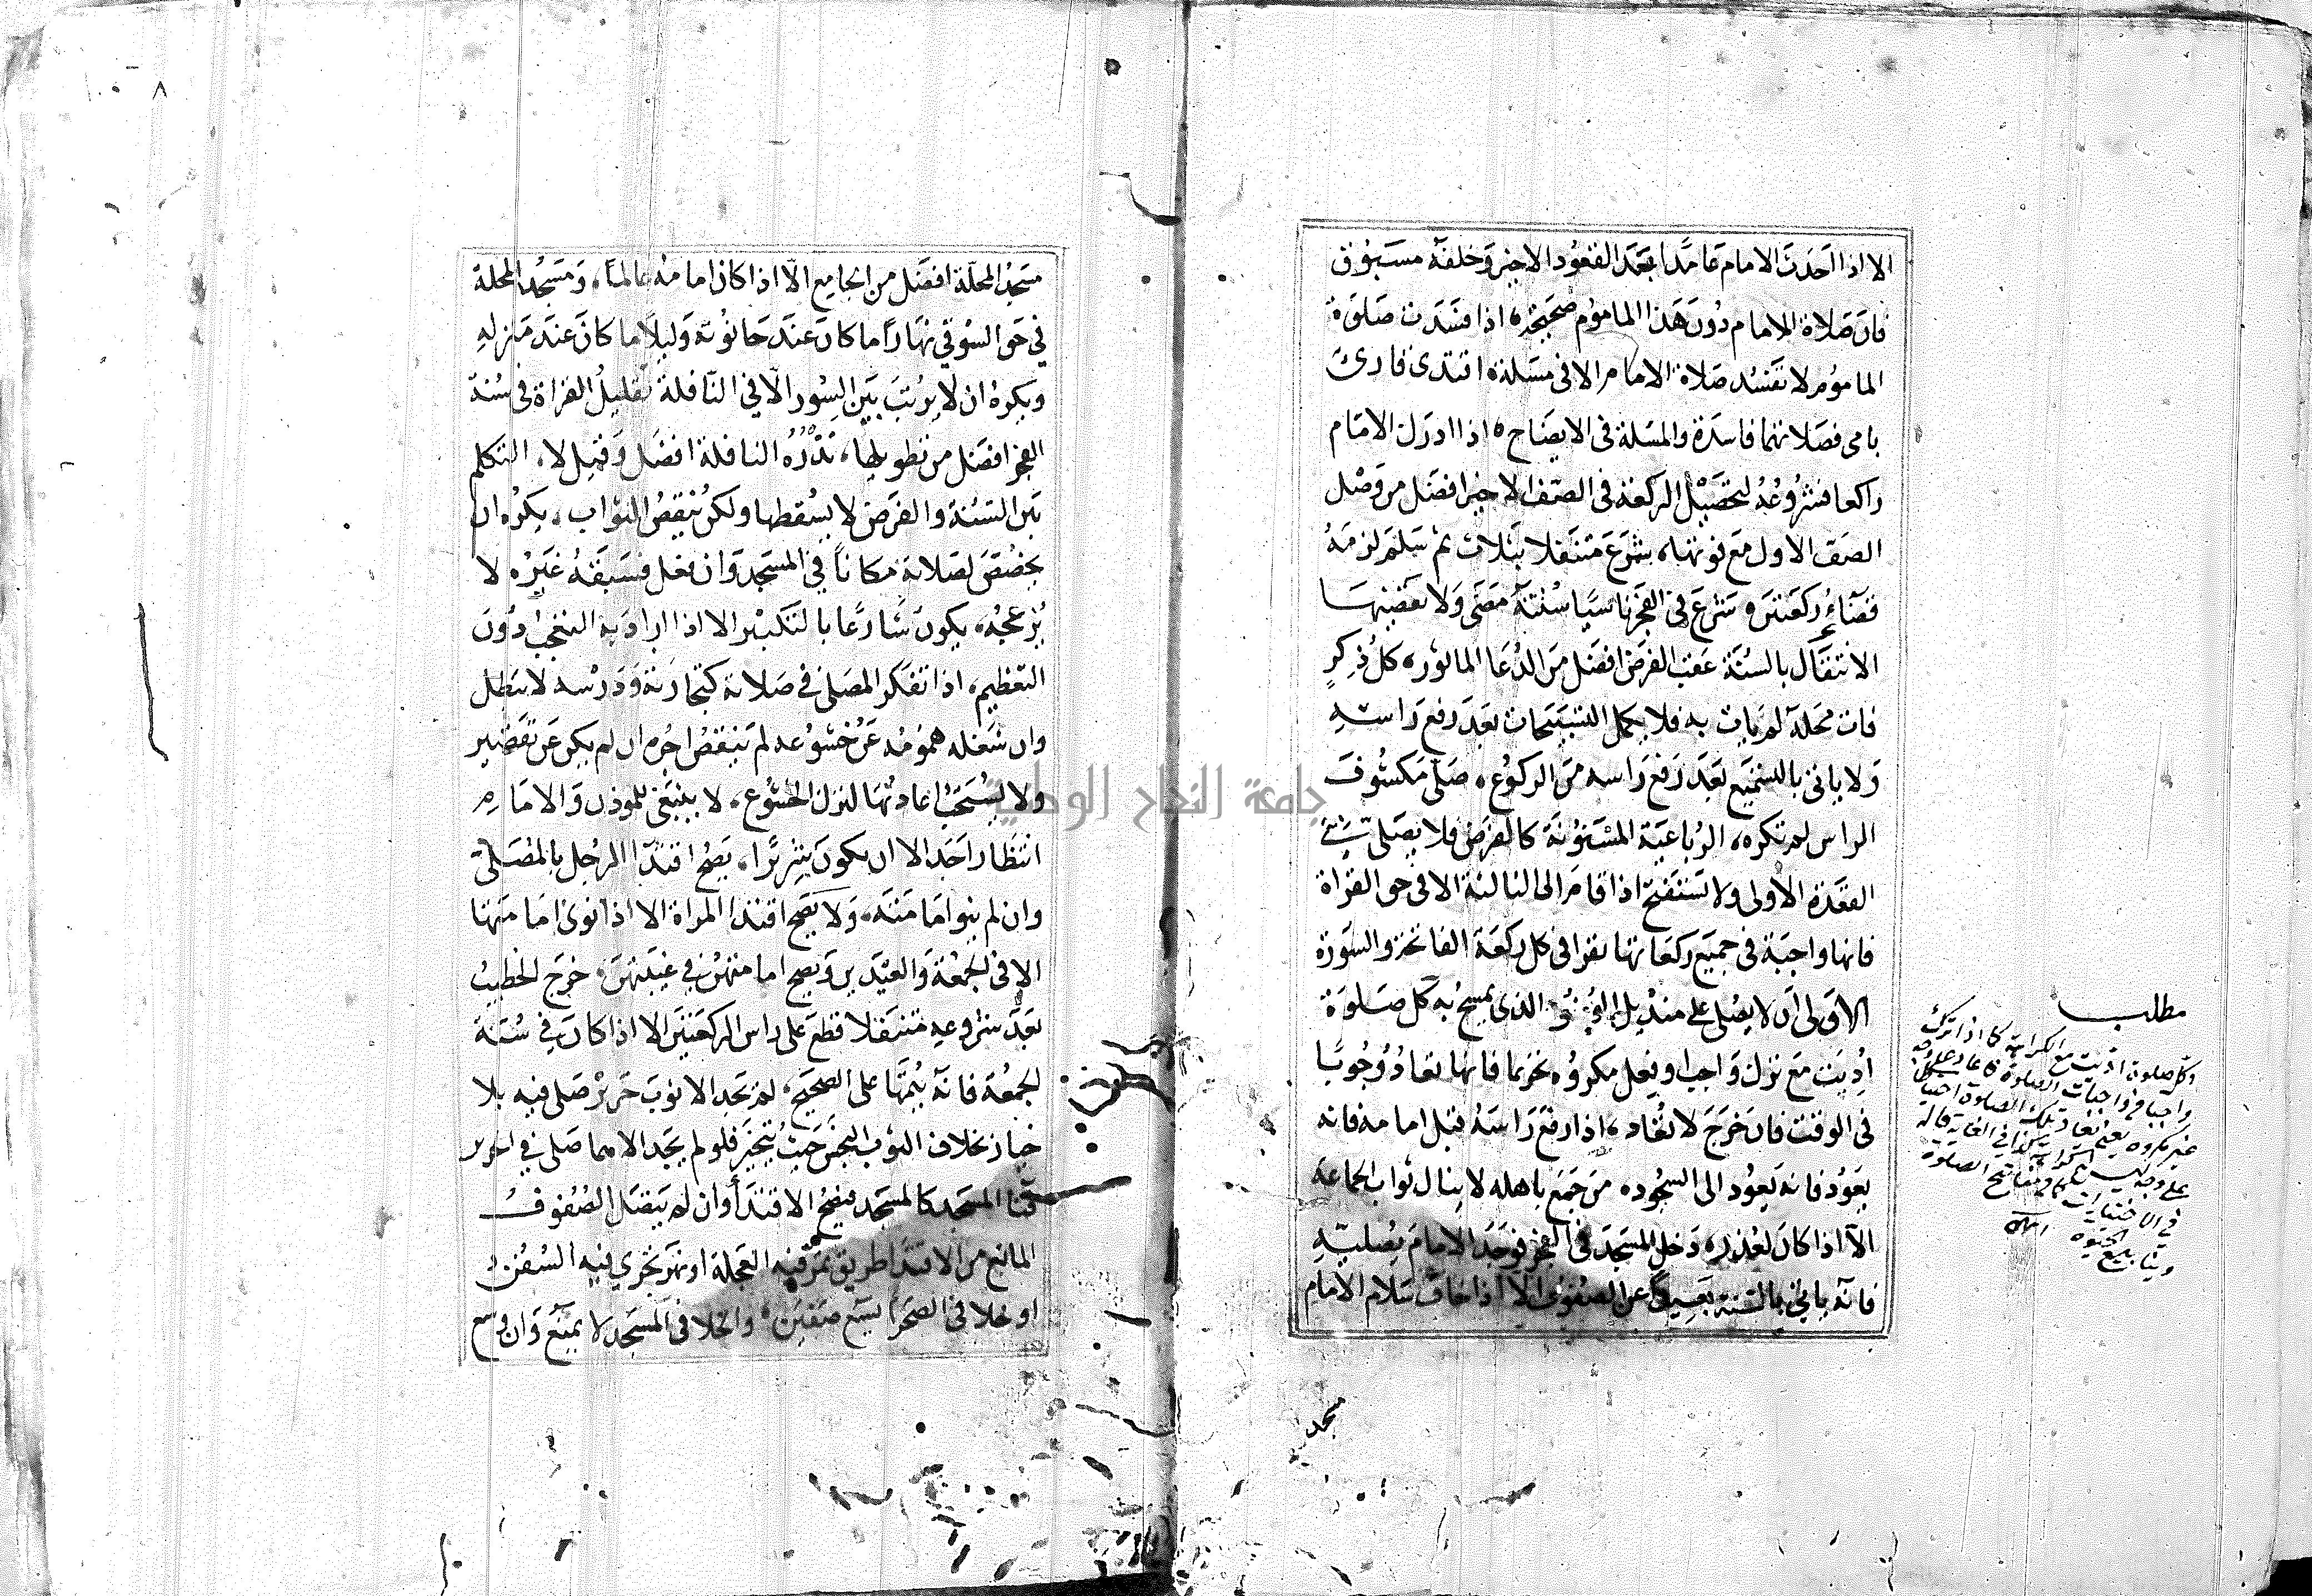 الا اذا احدث الامام عامدا بعد القعود الاخير وخلفه مسبوق
فان صلاة الامام دون هذا الماموم صحيحة، اذا فسدت صلوة
الماموم لا تفسد صلاة الامام الا فى مسلة، اقتدى قارئ
بامى فصلاتهما فاسدة والمسلة فى الايضاح، اذا ادرك الامام
راكعا فشروعه لتحصيل الركعة فى الصف الاخير افضل من وصل
الصف الاول مع فوتها، شرع متنفلا بثلاث ثم سلم لزمه
قضآء ركعتين، شرع فى الفجر ناسيا سنته مضى ولا يقضيها
الانتقال بالسنة عقب الفرض افضل من الدعا الماثور، كل ذكر
فات محله لم يات به فلا يكمل التسبيحات بعد رفع راسه
ولا ياتى بالتسميع بعد رفع راسه من الركوع، صلى مكشوف
الراس لم تكره، الرباعية المسنونة كالفرض فلا يصلى فى
القعدة الاولى ولا يستفتح اذا قام الى الثالثة الا فى حق القراة
فانها واجبة فى جميع ركعاتها يقرا فى كل ركعة الفاتحة والسورة
الاولى ان لا يصلى على منديل الوضوء الذى يمسح به كل صلوة
اديت مع ترك واجب او فعل مكروه تحريما فانها تعاد وجوبا
فى الوقت فان خرج لا تعاد، اذا رفع راسه قبل امامه فانه
يعود فانه يعود الى السجود، من جمع باهله لا ينال ثواب الجماعة
الا اذا كان لعذر، دخل المسجد فى الفجر فوجد الامام يصليه
فانه ياتى بالسنة بعيدا عن الصفوف الا اذا خاف سلام الامام
مسجد
مطلب
وكل صلوة اديت مع الكراهة كما اذا ترك
واجبا من واجبات الصلوة
غير مكروه يعنى تعاد تلك الصلوة
٨
مسجد المحلة افضل من الجامع الا اذا كان امامه عالما، ومسجد المحلة
في حق السوقي نهارا ما كان عند حانوته وليلا ما كان عند منزله
ويكره ان لا يرتب بين السور الا في النافلة تقليل القراة فى سنة
الفجر افضل من تطويلها، نذره النافلة افضل وقيل لا، التكلم
بين السنة والفرض لا يسقطها ولكن ينقص الثواب، يكره ان
يخصص لصلاته مكانا في المسجد وان فعل فسبقه غيره لا
يزعجه، يكون شارعا بالتكبير الا اذا اراد به التعجب دون
التعظيم، اذا تفكر المصلى فى صلاته كتجارته ودرسه لا تبطل
وان شغله همومه عن خشوعه لم ينقص اجره ان لم يكن عن تقصير
ولا يستحب اعادتها لترك الخشوع، لا ينبغى للموذن والامام
انتظار احد الا ان يكون شريرا، يصح اقتدا الرجل بالمصلى
وان لم ينو امامته، ولا يصح اقتدا المراة الا اذا نوى امامتها
الا فى الجمعة والعيدين ويصح امامتهن في غيبتهن، خرج الخطيب
بعد شروعه متنفلا قطع على راس الركعتين الا اذا كان في سنة
الجمعة فانه يتمها على الصحيح، لم يجد الا ثوب حرير صلى فيه بلا
خيار بخلاف الثوب النجس حيث يتخير فلو لم يجد الا هما صلى في الحرير
فنا المسجد كالمسجد فيصح الاقتدا وان لم يتصل الصفوف
المانع من الاقتدا طريق تمر فيه العجلة او نهر تجري فيه السفن
او خلا فى الصحرا يسع صفين، والخلا فى المسجد لا يمنع وان وسع
جامعة النجاح الوطنية